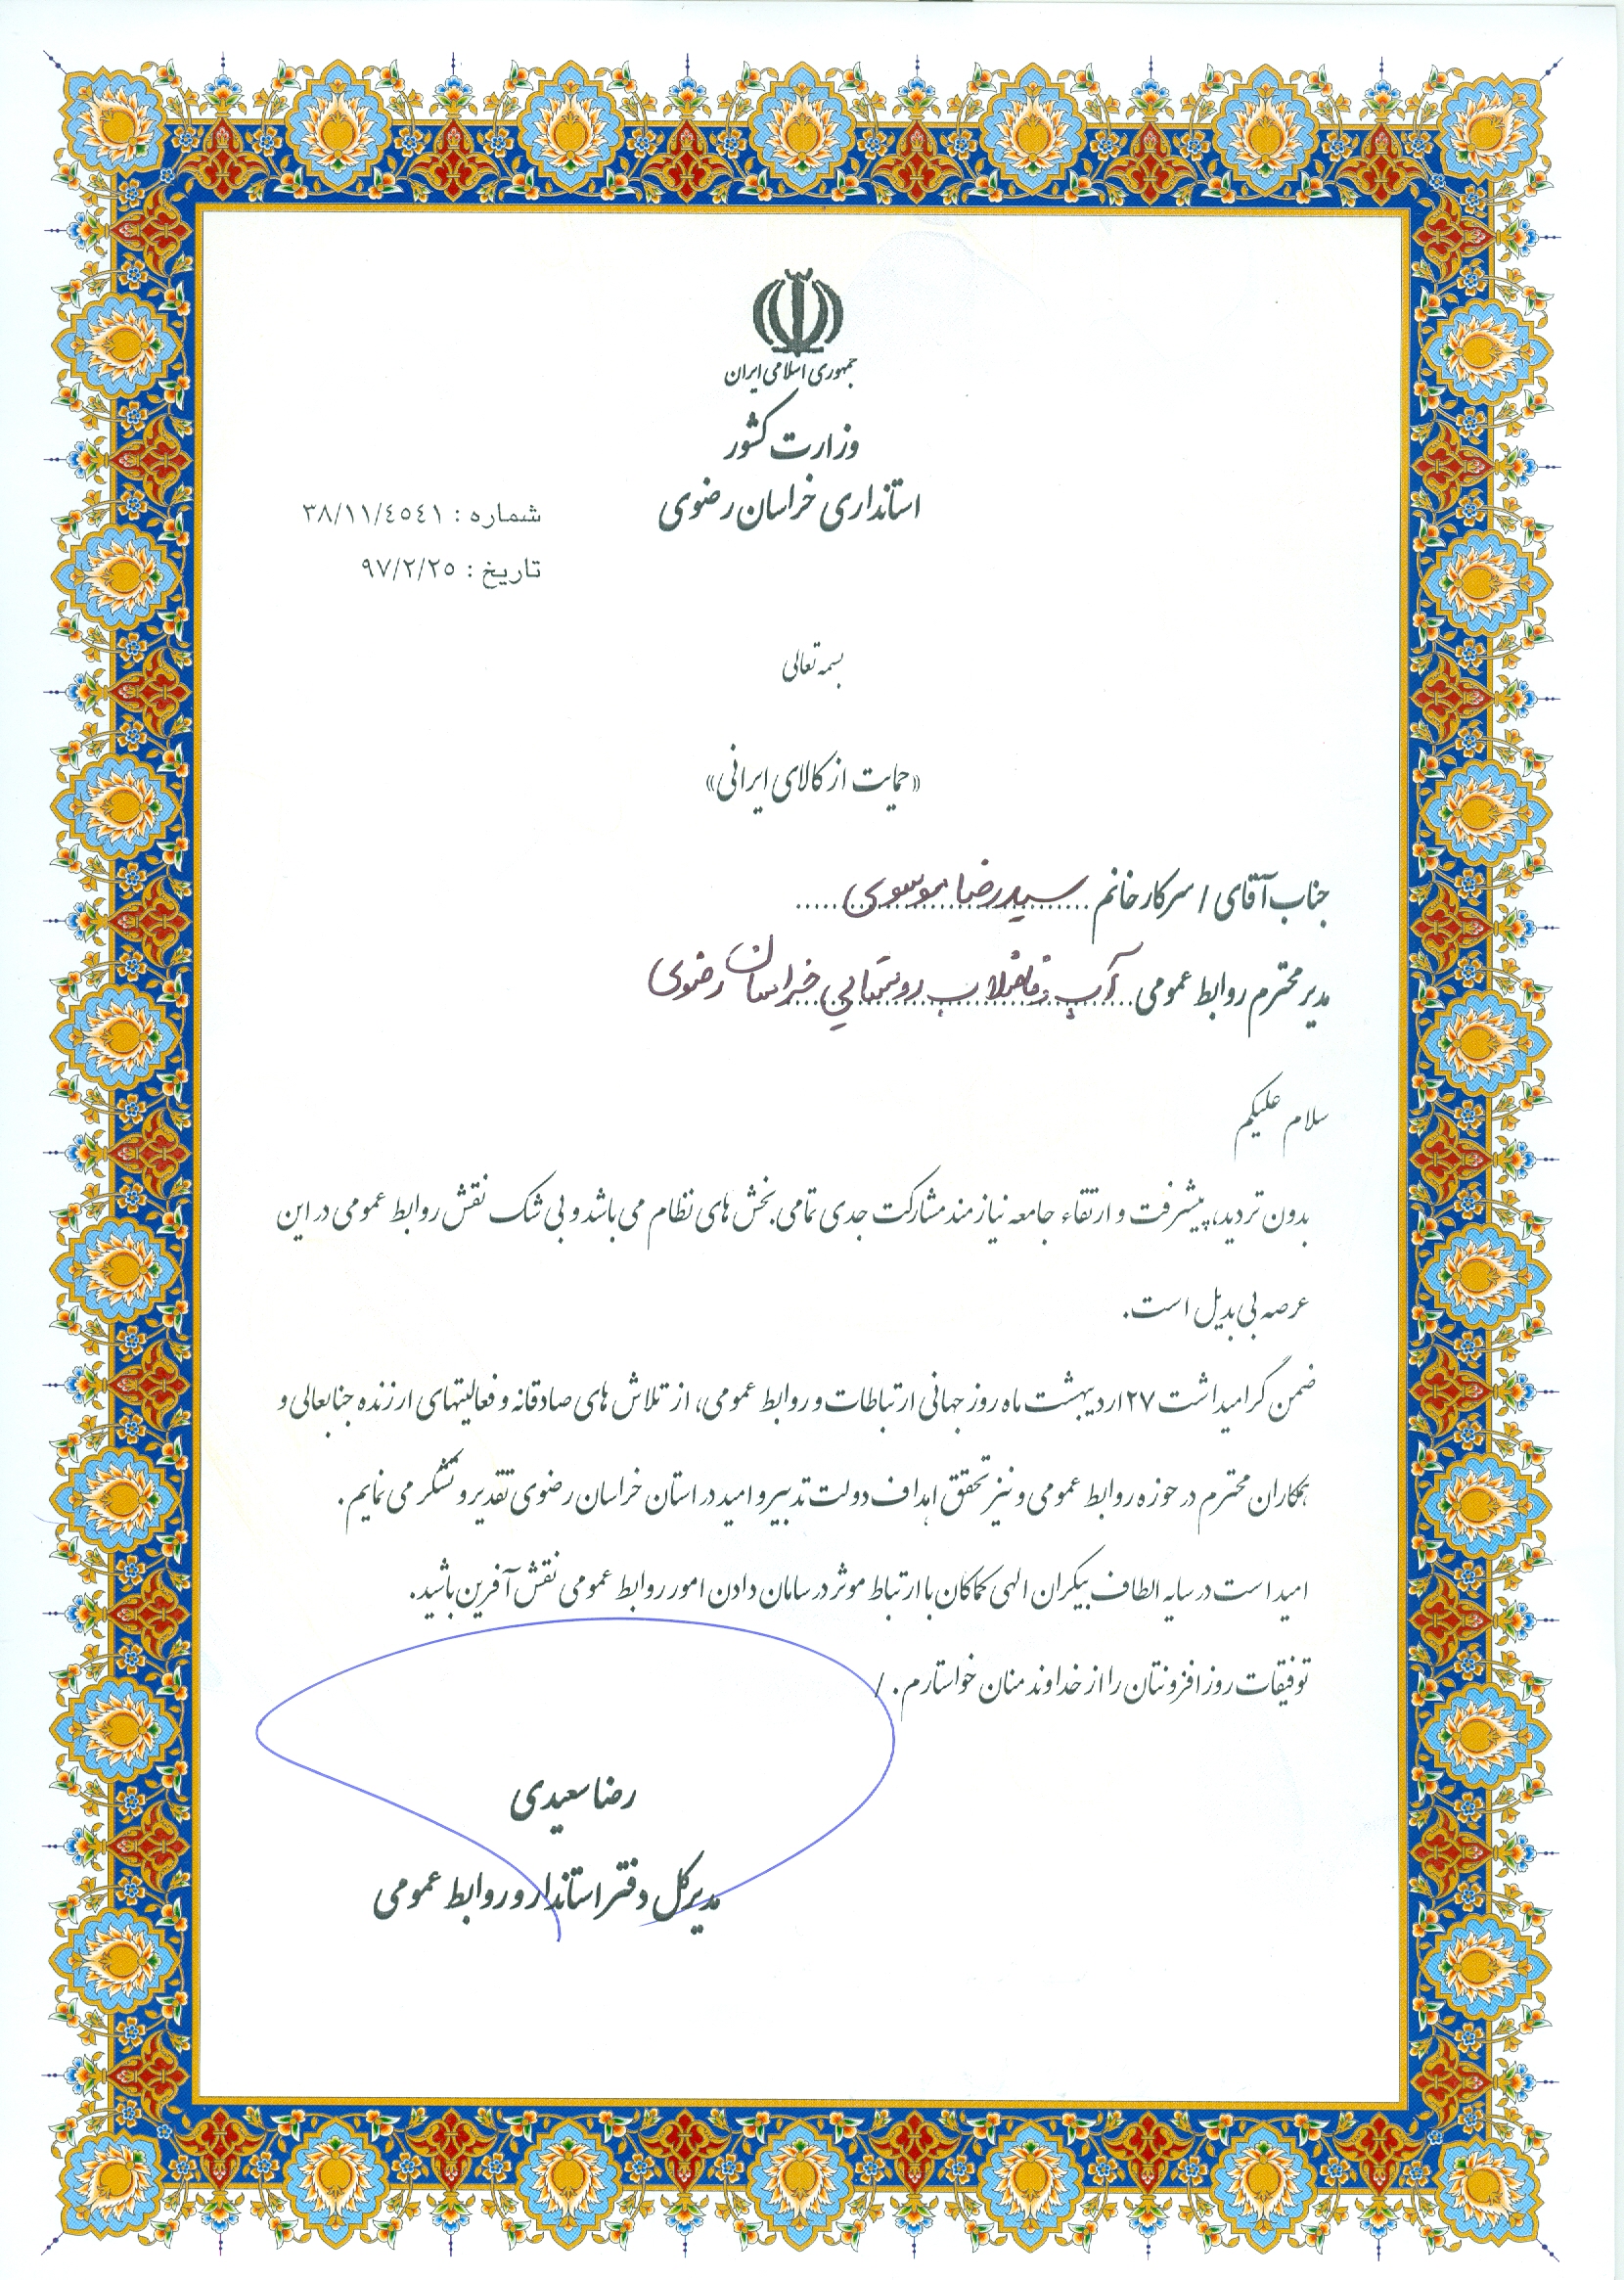 جمهوری اسلامی ایران
وزارت کشور
استانداری خراسان رضوی
شماره : ٣٨/١١/٤٥٤١
تاریخ : ٩٧/٢/٢٥
بسمه تعالی
«حمایت از کالای ایرانی»
جناب آقای / سرکار خانم سید رضا موسوی
مدیر محترم روابط عمومی آب و فاضلاب روستایی خراسان رضوی
سلام علیکم
بدون تردید، پیشرفت و ارتقاء جامعه نیازمند مشارکت جدی تمامی بخش های نظام می باشد و بی شک نقش روابط عمومی در این
عرصه بی بدیل است.
ضمن گرامیداشت ۲۷ اردیبهشت ماه روز جهانی ارتباطات و روابط عمومی، از تلاش های صادقانه و فعالیتهای ارزنده جنابعالی و
همکاران محترم در حوزه روابط عمومی و نیز تحقق اهداف دولت تدبیر و امید در استان خراسان رضوی تقدیر و تشکر می نمایم.
امید است در سایه الطاف بیکران الهی کماکان با ارتباط موثر در سامان دادن امور روابط عمومی نقش آفرین باشید.
توفیقات روز افزونتان را از خداوند منان خواستارم. /
رضا سعیدی
مدیرکل دفتر استاندار و روابط عمومی